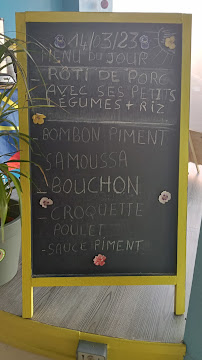 14/03/23
MENU DU JOUR
- ROTI DE PORC
AVEC SES PETITS
LÉGUMES + RIZ
- BOMBON PIMENT
- SAMOUSSA
- BOUCHON
- CROQUETTE
POULET
- SAUCE PIMENT